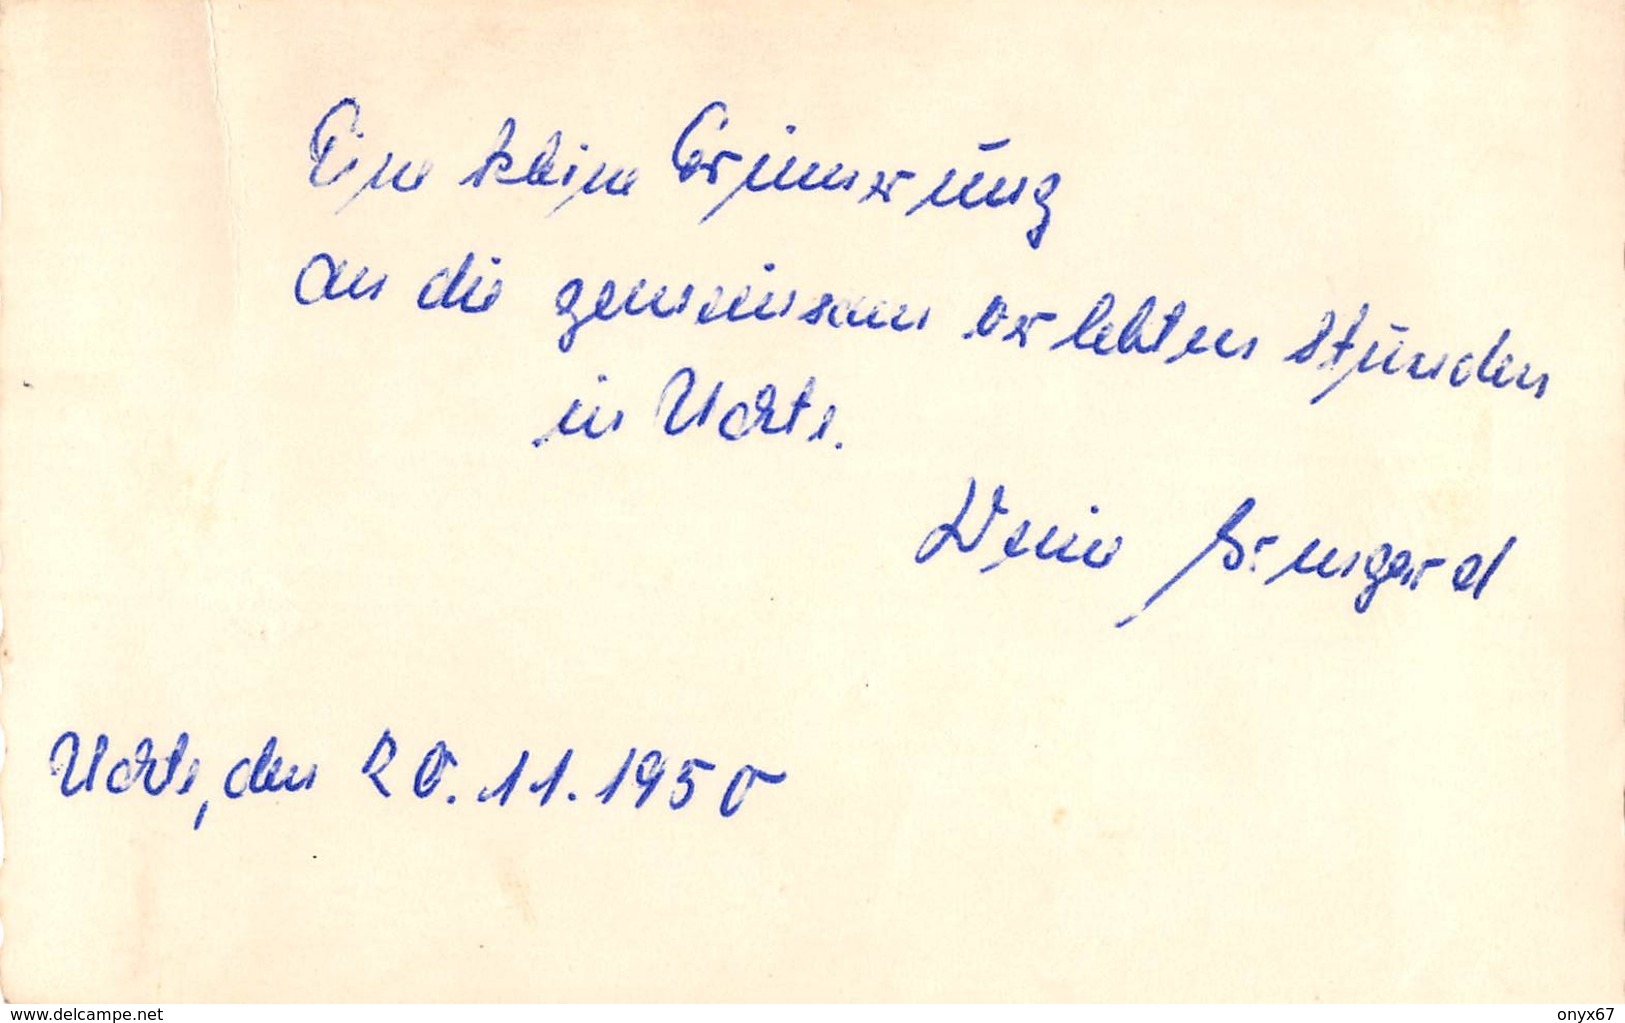 Eine kleine Erinnerung
an die gemeinsam verlebten Stunden
in Uchte.
Deine Irmgard
Uchte, den 20.11.1950
www.delcampe.net
onyx67